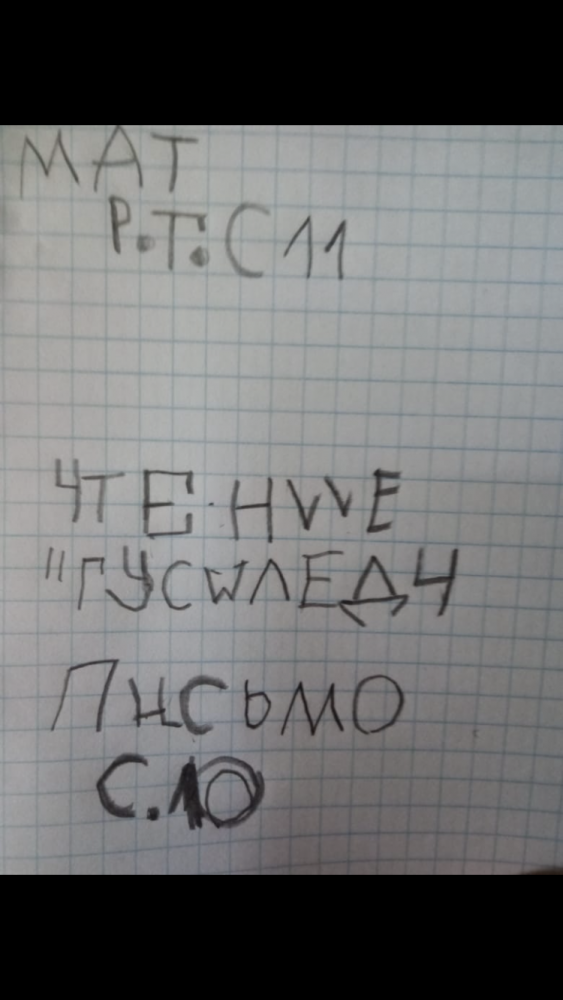 МАТ
Р.Т: С 11
ЧТЕНИЕ
"ГУСИЛЕДЧ
ПИСЬМО
С.10